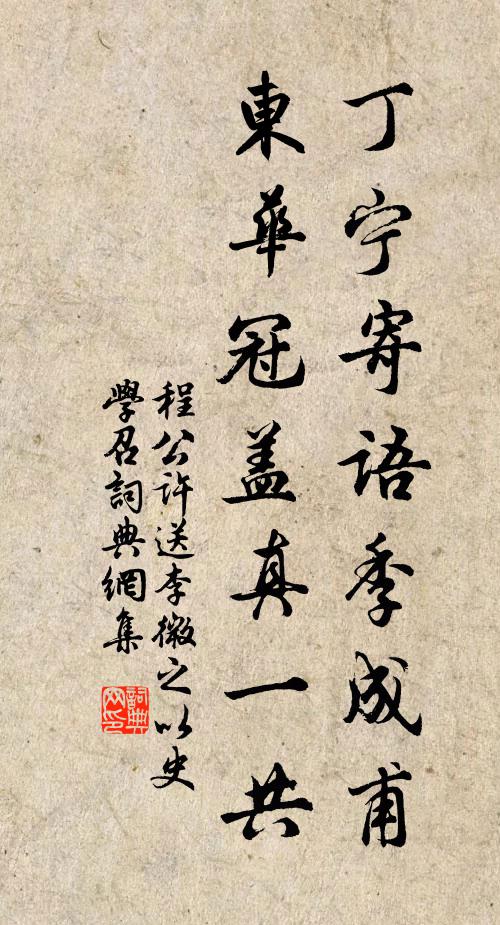 丁宁寄语季成甫
東華冠盖真一共
程公许送李微之以史
學召詞典網集
詞典
网印